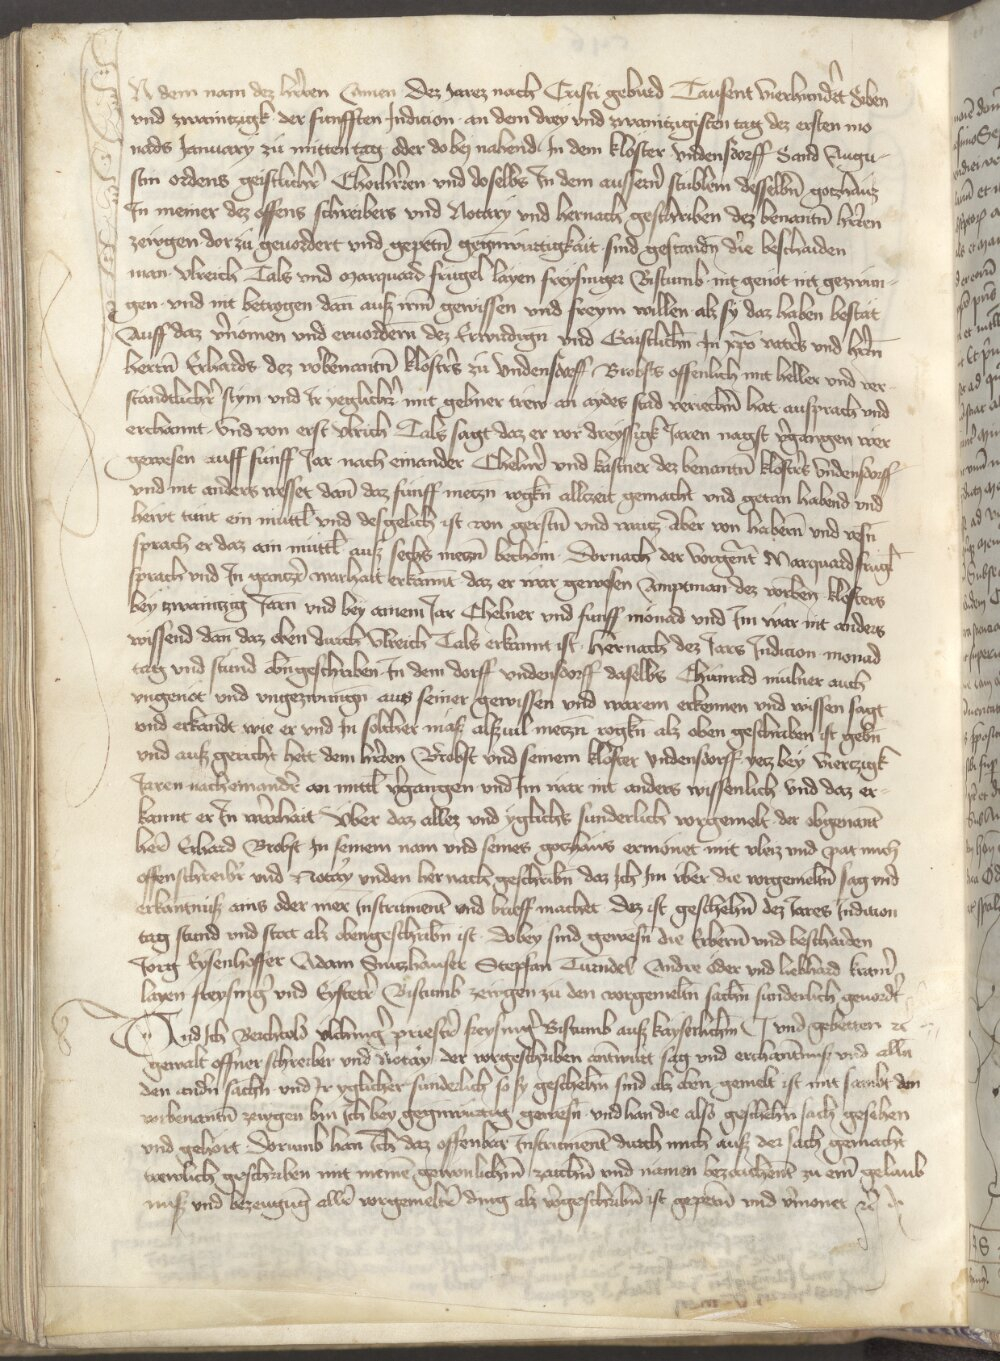 In dem nam dez herren Amen Dez Jarez nach Cristi geburd Tausent vierhundert Siben
und zwaintzigk der funfften Indicion an dem drey und zwaintzigisten tag dez ersten mo
nads January zu mitten tag oder do bey nahend In dem kloster Undensdorff Sand Augu-
stin ordens geistlicher Chorherren und doselbs In dem aussern stublein desselben gotzhauz
In meiner dez offens schreibers und Notary und hernach geschriben dez benantn herren
zewgen dor zu gevordert und gepetn gegenwürtigkait sind gestandn die beschaiden
man Ulreich Tals und Marquard frugel layen freysinger Bistumb nit genot nit gezwun-
gen und nit betrogen dan auz irm gewissen und freym willen alz sy daz haben bestät
Auff daz vernomen und ervordern dez Erwirdign und Gaistlichn In xpo vaters und herrn
herrn Erhards dez vobenantn klosters zu Undensdorff Brobsts offenlich mit heller und ver-
standtlicher stym und Ir yeglicher mit gebner trew an aydes stad veriechn hat ausprach und
erchannt Und von erst Ulrich Tals sagt daz er vor dreyssigk Jaren nagst vergangen wer
gewesen auff funff Jar nach einander Chelner und kastner dez benantn klosters Undensdorff
und nit anders wesset dan daz funff metzn rogkn allzeit gemacht und getan habend und
hewt tunt ein muttl und desgelich ist von gerstn und waitz aber von habern und vesn
sprach er daz ain muttl auz sechs metzn bechom Dornach der vorgent Marquard frugl
sprach und In gantzer warhait erkannt daz er wär gewesen Amptman dez vorben klosters
bey zwaintzig Jarn und bey ainem Jar Chelner und funff monad und Im wär nit anders
wissend dan daz oben durch Ulreich Tals erkannt ist hernach dez Jars Indicion monad
tag und stund obngeschriben In dem dorff Undensdorff daselbs Chunrad mulner auch
ungenot und ungezwungn aus seiner gewissen und warem erkennen und wissen sagt
und erkandt wie er und In solcher mass alzvil metzn rogkn alz oben geschriben ist gebn
und ausz gericht hett dem herren Brobst und seinem kloster Undensdorff yetz bey viertzigk
Jaren nacheinander an mittl vergangen und Im wär nit anders wissenlich und daz er-
kannt er In warhait Uber daz allez und yglichs sunderlich vorgemelt der obgenant
herr Erhard Brobst In seinem nam und seines gotzhaus ermonet mit vleiz und pat mich
offenschreiber und Notary unden hernach geschribn daz Ich Im uber die vorgemeltn sag und
erkantnusz ains oder mer Instrument und brieff machet Daz ist geschehn dez Jares Indicion
tag stund und stat alz obengeschribn ist Dobey sind gewesn die Erbern und beschaiden
Jorg Eysenhoffer Adam Sintzhauser Stephan Turndel Andre öder und liebhard kramer
layen freysinger und Eysteter Bistumb zewgen zu den vorgemeltn sachn sunderlich gevordert
Und Ich Berchtold priester freysinger Bistumb ausz kayserlichem und gebetten etc
gewalt offner schreiber und Notary der vorgeschriben antwurt sag und erchantnusz und alln
den andn sachn und Ir yglicher sunderlich so sy geschehn sind alz oben gemelt ist mit sambt den
vorbenantn zewgen bin Ich bey gegnwurtig gewesn und han die also geschehn sach gesehen
und gehort Dorumb han Ich daz offenbar Instrument durch mich ausz der sach gemacht
trewlich geschriben mit meine gewonlichem zaichn und namen bezaichent zu eim gelaub
nusz und bezeugung aller vorgemelten ding alz vorgeschribn ist gepetn und vermonet etc